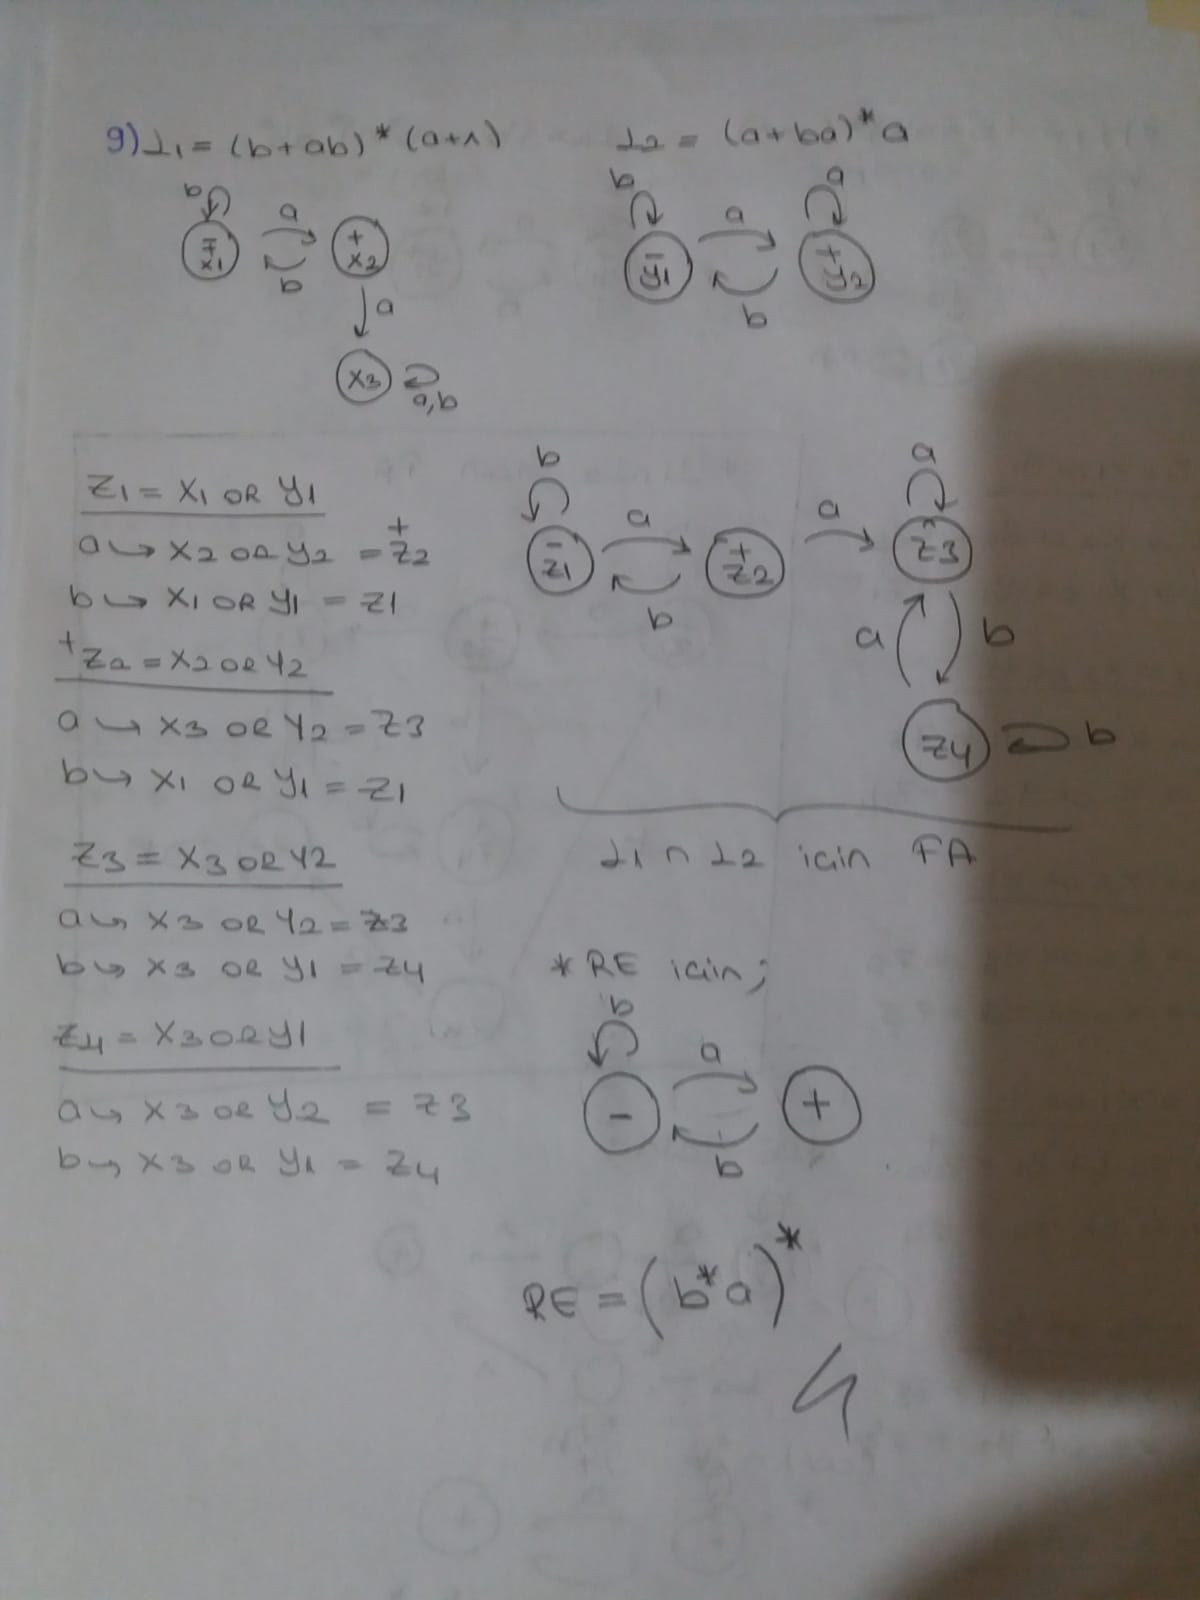 9) L1 = (b+ab)* (a+Λ) L2 = (a+ba)* a
b a b ∓ x1 + x2 a x3 a,b
b a a b - y1 + y2
z1 = x1 OR y1
a ↪ x2 OR y2 = +z2
b ↪ x1 OR y1 = z1
+z2 = x2 OR y2
a ↪ x3 OR y2 = z3
b ↪ x1 OR y1 = z1
z3 = x3 OR y2
a ↪ x3 OR y2 = z3
b ↪ x3 OR y1 = z4
z4 = x3 OR y1
a ↪ x3 OR y2 = z3
b ↪ x3 OR y1 = z4
b a a a
- z1 + z2 z3
b a b
z4 b
L1 ∩ L2 icin FA
* RE icin;
b a
- +
b
RE = (b*a)*